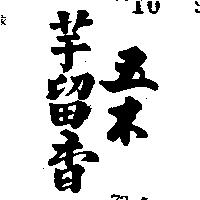 10
五木
芋留香